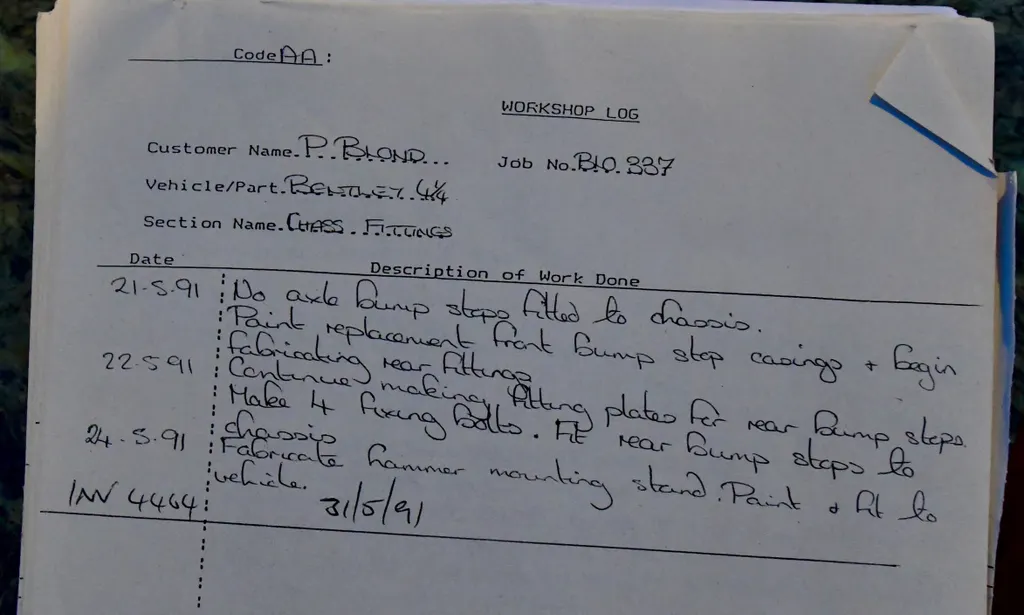 Code AA:
WORKSHOP LOG
Customer Name. P. BLOND...
Job No. BLO. 337
Vehicle/Part. BENTLEY. 4¼
Section Name. CHASS. FITTINGS
Date Description of Work Done
21-5-91 No axle bump stops fitted to chassis.
Paint replacement front bump stop casings + begin
fabricating rear fittings
22-5-91 Continue making fitting plates for rear bump stops.
Make 4 fixing bolts. Fit rear bump stops to
chassis
24-5-91 Fabricate hammer mounting stand. Paint & fit to
vehicle.
INV 4464 31/5/91